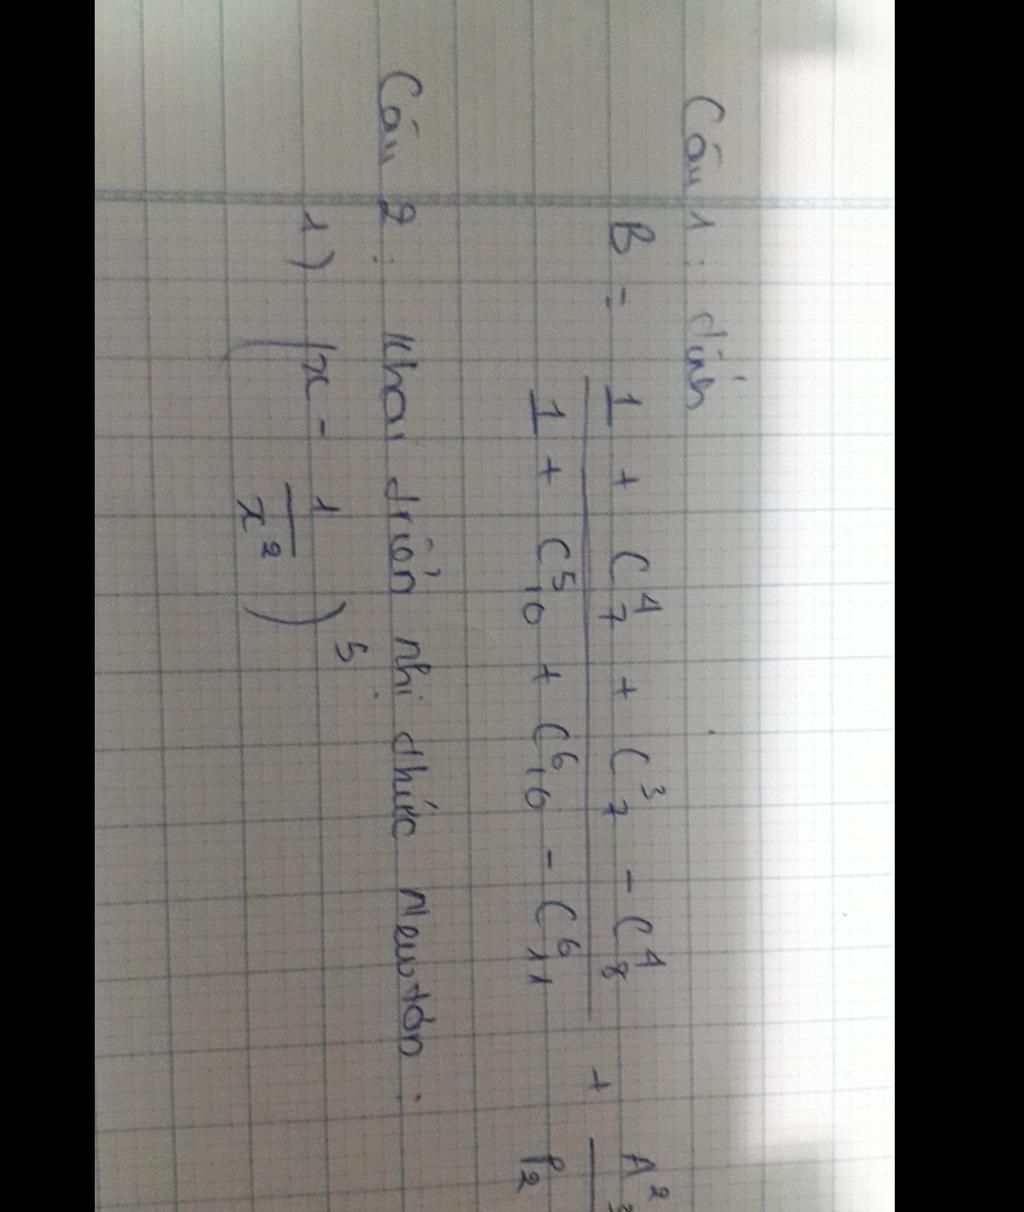 Câu 1: tính
B = \frac{1 + C_7^4 + C_7^3 - C_8^4}{1 + C_{10}^5 + C_{10}^6 - C_{11}^6} + \frac{A^2}{P_2}
Câu 2: Khai triển nhị thức Newton:
1) (x - \frac{1}{x^2})^5